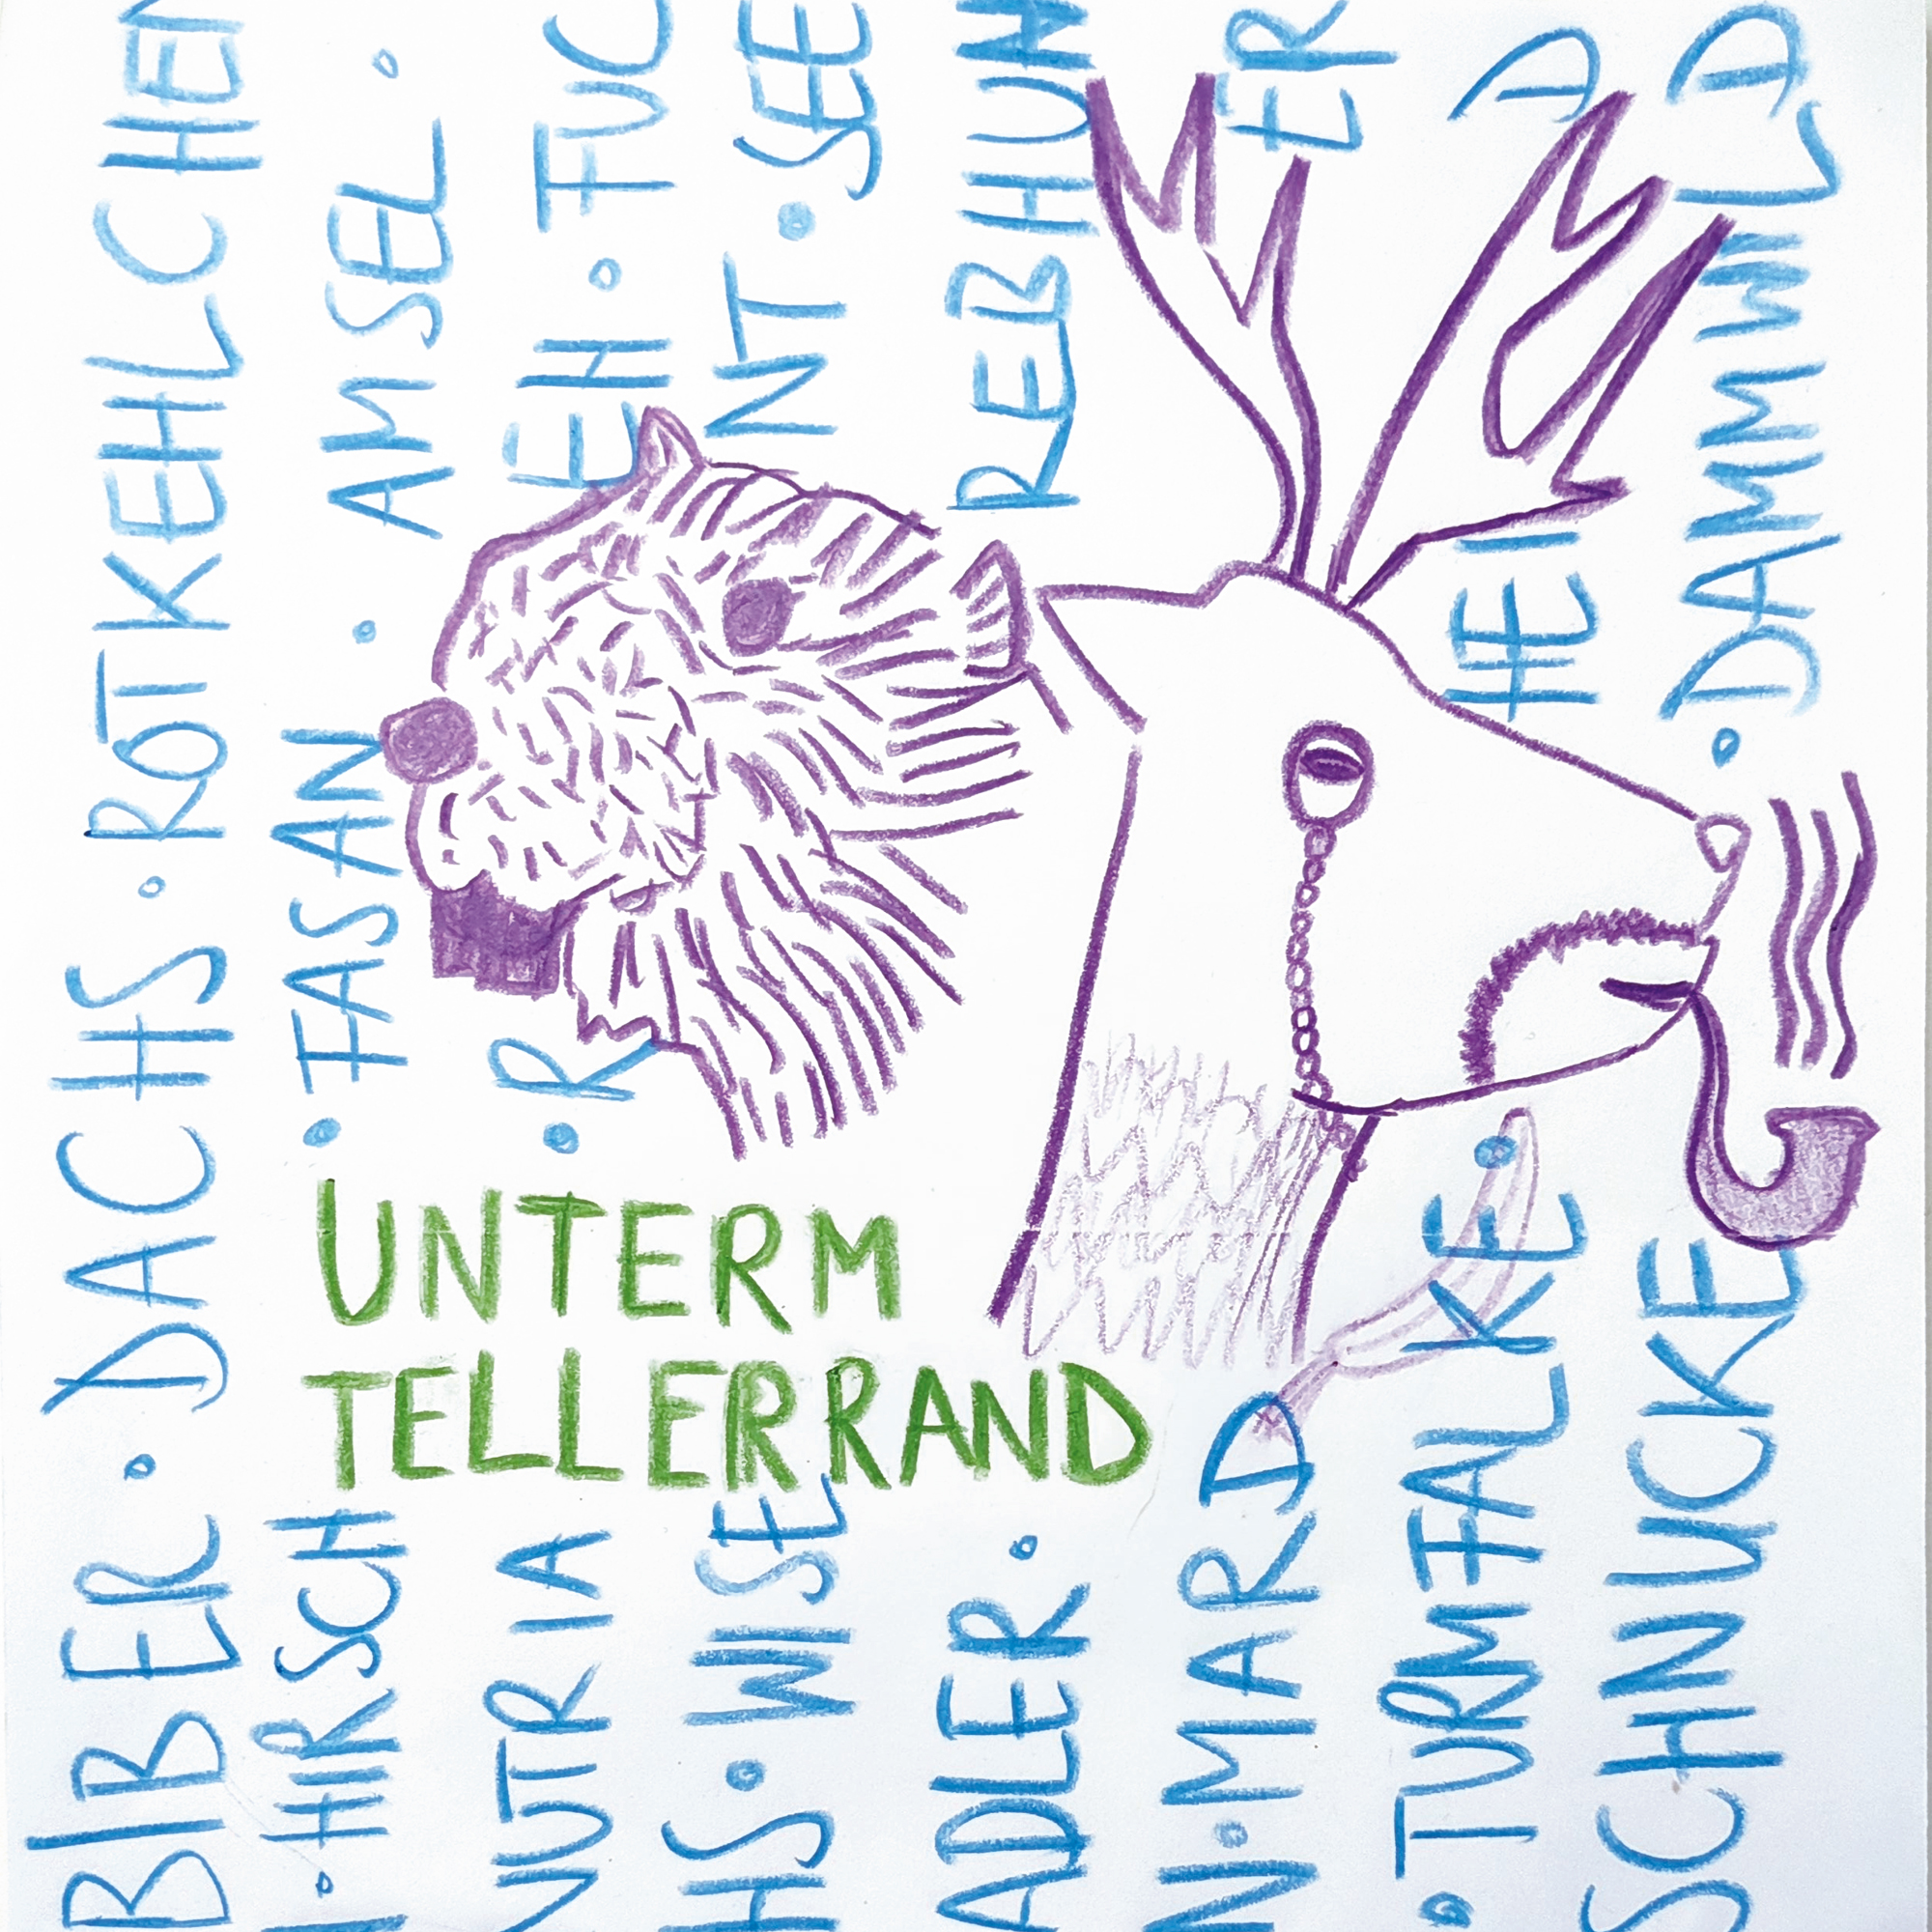 BIBER · DACHS · ROTKEHLCHEN
· HIRSCH · FASAN · AMSEL ·
NUTRIA · R EH · FUC
HS · WISE NT · SEE
ADLER · REBHUN
N · MARD ER
· TURMFALKE · HEI D
SCHNUCKE · DAMMWILD
UNTERM
TELLERRAND